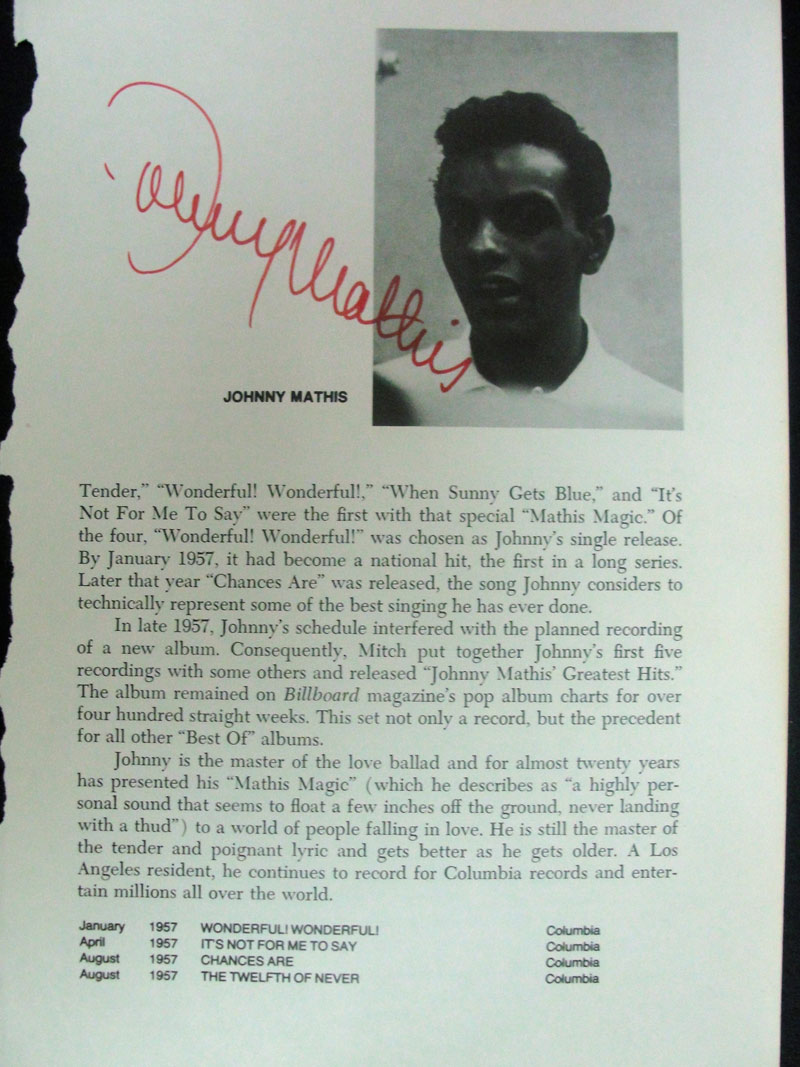 Johnny Mathis
JOHNNY MATHIS
Tender,” “Wonderful! Wonderful!,” “When Sunny Gets Blue,” and “It’s
Not For Me To Say” were the first with that special “Mathis Magic.” Of
the four, “Wonderful! Wonderful!” was chosen as Johnny’s single release.
By January 1957, it had become a national hit, the first in a long series.
Later that year “Chances Are” was released, the song Johnny considers to
technically represent some of the best singing he has ever done.
In late 1957, Johnny’s schedule interfered with the planned recording
of a new album. Consequently, Mitch put together Johnny’s first five
recordings with some others and released “Johnny Mathis’ Greatest Hits.”
The album remained on Billboard magazine’s pop album charts for over
four hundred straight weeks. This set not only a record, but the precedent
for all other “Best Of” albums.
Johnny is the master of the love ballad and for almost twenty years
has presented his “Mathis Magic” (which he describes as “a highly per-
sonal sound that seems to float a few inches off the ground, never landing
with a thud”) to a world of people falling in love. He is still the master of
the tender and poignant lyric and gets better as he gets older. A Los
Angeles resident, he continues to record for Columbia records and enter-
tain millions all over the world.
January 1957 WONDERFUL! WONDERFUL! Columbia
April 1957 IT'S NOT FOR ME TO SAY Columbia
August 1957 CHANCES ARE Columbia
August 1957 THE TWELFTH OF NEVER Columbia